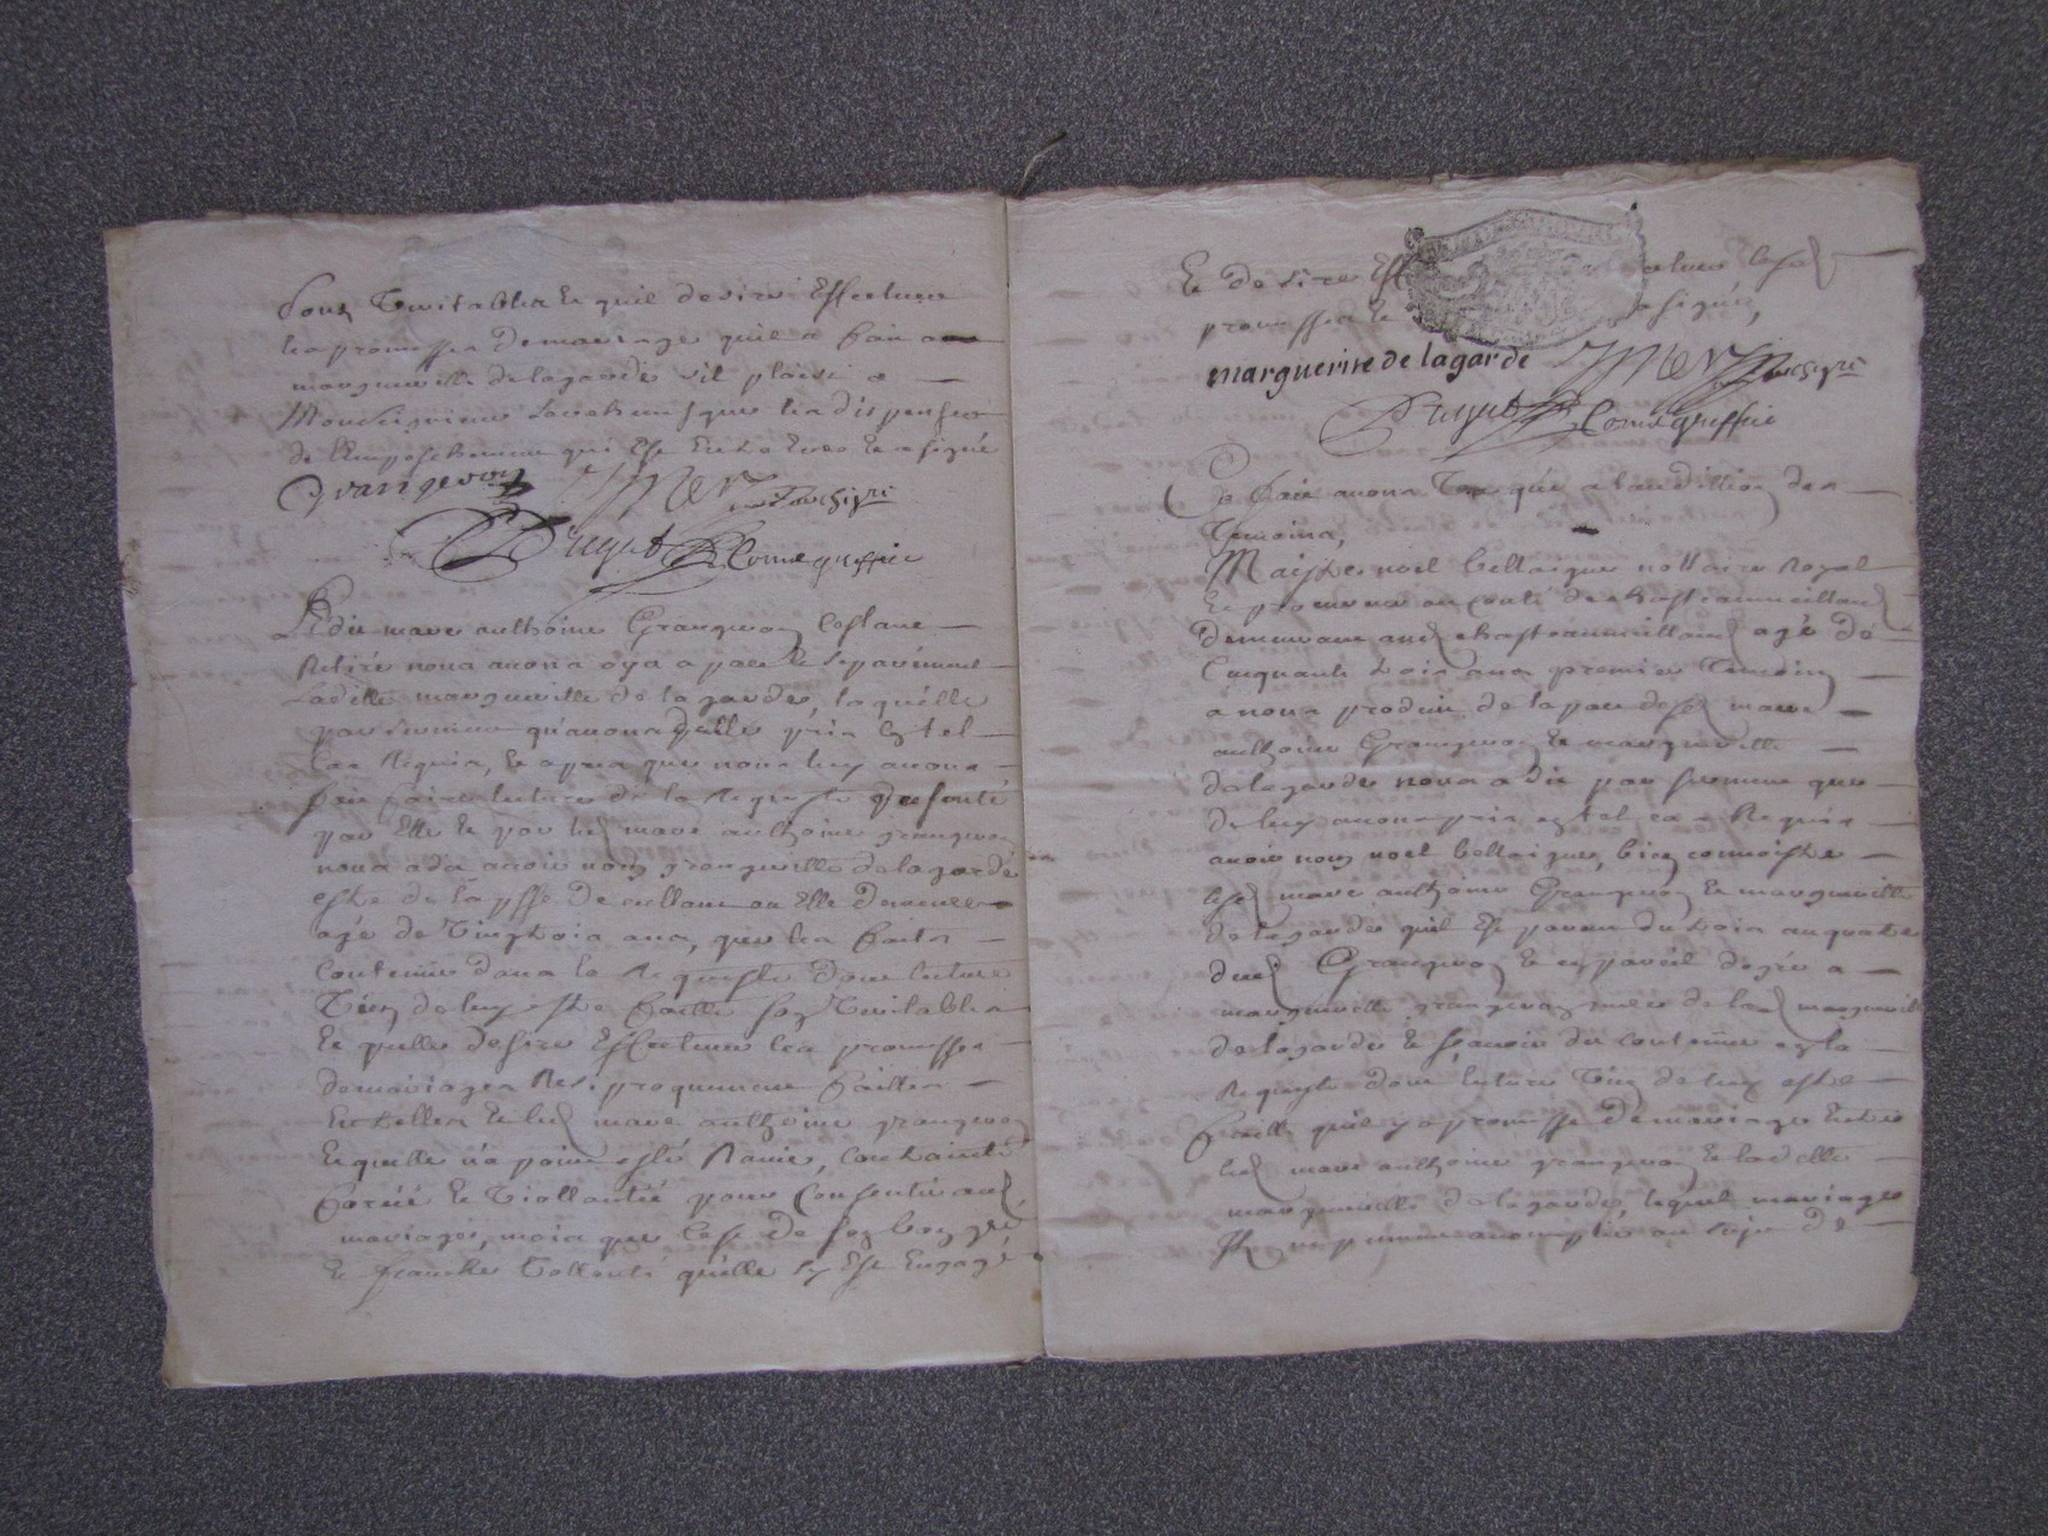 sont veritables et quil desire Effectuer
les promesses de mariage quil a fait a
margueritte delagarde sil plaist a
Monseigneur Larchevesque les dispenser
de lempeschement qui Est Entre Eux et a signé
Grangevon
Duguet Comis greffier
Ledit marc anthoine Grangevon Cestant
Retiré nous avons oÿ a part et separément
Laditte margueritte de lagarde, laquelle
par serment qu'avons delle pris en tel
cas Requis, et apres que nous luy avons
fait faire lecture de la Requeste presenté
par Elle et par led marc anthoine grangevon
nous a dit avoir nom margueritte delagarde
estre de la psse de ou Elle demeure
agé de vingt trois ans, que les faits
contenus dans la Requeste dont lecture
vien de luy estre faitte son veritables
Et quelle desire Effectuer les promesses
de mariages Resiproquement faittes
Entrelles et led marc anthoine grangevon
Et quelle n'a point esté Ravie, contrainte
forcéé et viollantéé pour consentir aud
mariage, mais que cest de son bon gré
et franche vollonté quelle sy Est Engagé
Et desire Eff ectuer lesd
promesses et a signé,
marguerite de lagarde
Duguet Comis greffier
Ce fait avons vaqué a laudition des
Temoins,
Maistre noel bellaigue nottaire Royal
et procureur au conté de chasteaumeillant
demeurant aud chasteaumeillant agé de
Cinquante trois ans premier Temoin
a nous produit de la part desd marc
anthoine Grangevon et margueritte
delagarde nous a dit par serment que
de luy avons pris en tel cas Requis
avoir nom noel bellaigue, bien connoistre
lesd marc anthoine Grangevon et margueritte
delagarde quil Est parent du trois au quatre
dud Grangevon et en pareil degré a
margueritte grangevon mere de lad marguerite
delagarde et sçavoir le contenu en la
Requeste dont lecture vien de luy estre
faitte quil y a promesse de mariage Entre
led marc anthoine grangevon et laditte
margueritte delagarde, lequel mariage
Ils ne peuvent accomplir au sujet de